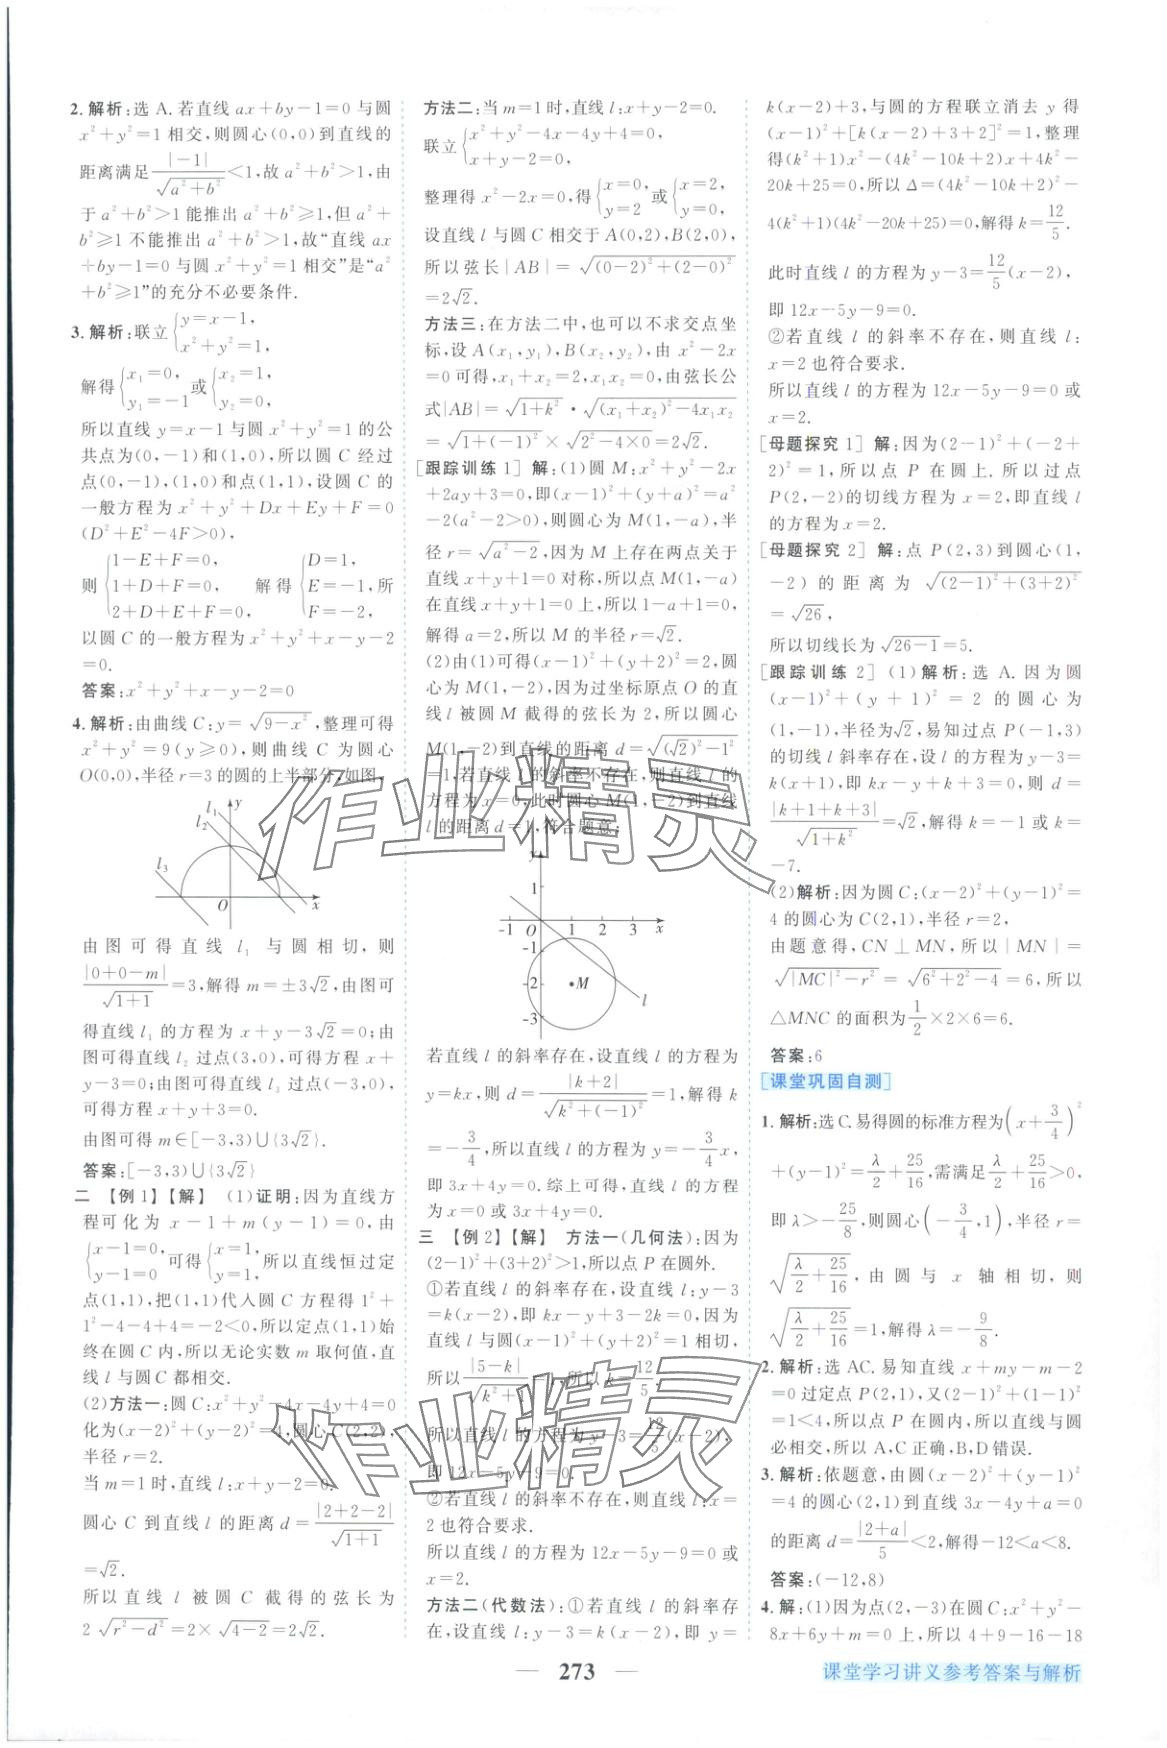 2. 解析:选 A. 若直线 ax+by-1=0 与圆
x²+y²=1 相交,则圆心(0,0)到直线的
距离满足 |-1|/√(a²+b²)<1,故 a²+b²>1,由
于 a²+b²>1 能推出 a²+b²≥1,但 a²+
b²≥1 不能推出 a²+b²>1,故“直线 ax
+by-1=0 与圆 x²+y²=1 相交”是“a²
+b²≥1”的充分不必要条件.
3. 解析:联立{y=x-1, x²+y²=1,
解得{x₁=0, y₁=-1 或{x₂=1, y₂=0,
所以直线 y=x-1 与圆 x²+y²=1 的公
共点为(0,-1)和(1,0),所以圆 C 经过
点(0,-1),(1,0)和点(1,1),设圆 C 的
一般方程为 x²+y²+Dx+Ey+F=0
(D²+E²-4F>0),
则{1-E+F=0, 1+D+F=0, 2+D+E+F=0, 解得{D=1, E=-1, F=-2, 所
以圆 C 的一般方程为 x²+y²+x-y-2
=0.
答案:x²+y²+x-y-2=0
4. 解析:由曲线 C:y=√(9-x²),整理可得
x²+y²=9(y≥0),则曲线 C 为圆心
O(0,0),半径 r=3 的圆的上半部分,如图,
l₁ y
l₂
l₃
O x
由图可得直线 l₁ 与圆相切,则
|0+0-m|/√(1+1)=3,解得 m=±3√2,由图可
得直线 l₁ 的方程为 x+y-3√2=0;由
图可得直线 l₂ 过点(3,0),可得方程 x+
y-3=0;由图可得直线 l₃ 过点(-3,0),
可得方程 x+y+3=0.
由图可得 m∈[-3,3)∪{3√2}.
答案:[-3,3)∪{3√2}
二 【例 1】【解】 (1)证明:因为直线方
程可化为 x-1+m(y-1)=0,由
{x-1=0, y-1=0 可得{x=1, y=1, 所以直线恒过定
点(1,1),把(1,1)代入圆 C 方程得 1²+
1²-4-4+4=-2<0,所以定点(1,1)始
终在圆 C 内,所以无论实数 m 取何值,直
线 l 与圆 C 都相交.
(2)方法一:圆 C:x²+y²-4x-4y+4=0
化为(x-2)²+(y-2)²=4,圆心 C(2,2),
半径 r=2.
当 m=1 时,直线 l:x+y-2=0.
圆心 C 到直线 l 的距离 d=|2+2-2|/√(1+1)
=√2.
所以直线 l 被圆 C 截得的弦长为
2√(r²-d²)=2×√(4-2)=2√2.
方法二:当 m=1 时,直线 l:x+y-2=0.
联立{x²+y²-4x-4y+4=0, x+y-2=0,
整理得 x²-2x=0,得{x=0, y=2 或{x=2, y=0,
设直线 l 与圆 C 相交于 A(0,2),B(2,0),
所以弦长|AB|=√((0-2)²+(2-0)²)
=2√2.
方法三:在方法二中,也可以不求交点坐
标,设 A(x₁,y₁),B(x₂,y₂),由 x²-2x
=0 可得,x₁+x₂=2,x₁x₂=0,由弦长公
式|AB|=√(1+k²)·√((x₁+x₂)²-4x₁x₂)
=√(1+(-1)²)×√(2²-4×0)=2√2.
[跟踪训练 1] 解:(1)圆 M:x²+y²-2x
+2ay+3=0,即(x-1)²+(y+a)²=a²
-2(a²-2>0),则圆心为 M(1,-a),半
径 r=√(a²-2),因为 M 上存在两点关于
直线 x+y+1=0 对称,所以点 M(1,-a)
在直线 x+y+1=0 上,所以 1-a+1=0,
解得 a=2,所以 M 的半径 r=√2.
(2)由(1)可得(x-1)²+(y+2)²=2,圆
心为 M(1,-2),因为过坐标原点 O 的直
线 l 被圆 M 截得的弦长为 2,所以圆心
M(1,-2)到直线的距离 d=√((√2)²-1²)
=1,若直线 l 的斜率不存在,则直线 l 的
方程为 x=0,此时圆心 M(1,-2)到直线
l 的距离 d=1,符合题意;
y
1
-1 O 1 2 3 x
-1
-2 M
l
-3
若直线 l 的斜率存在,设直线 l 的方程为
y=kx,则 d=|k+2|/√(k²+(-1)²)=1,解得 k
=-3/4,所以直线 l 的方程为 y=-3/4x,
即 3x+4y=0.综上可得,直线 l 的方程
为 x=0 或 3x+4y=0.
三 【例 2】【解】 方法一(几何法):因为
(2-1)²+(3+2)²>1,所以点 P 在圆外.
①若直线 l 的斜率存在,设直线 l:y-3
=k(x-2),即 kx-y+3-2k=0,因为
直线 l 与圆(x-1)²+(y+2)²=1 相切,
所以 |5-k|/√(k²+1)=1,解得 k=12/5.
所以直线 l 的方程为 y-3=12/5(x-2),
即 12x-5y-9=0.
②若直线 l 的斜率不存在,则直线 l:x=
2 也符合要求.
所以直线 l 的方程为 12x-5y-9=0 或
x=2.
方法二(代数法):①若直线 l 的斜率存
在,设直线 l:y-3=k(x-2),即 y=
k(x-2)+3,与圆的方程联立消去 y 得
(x-1)²+[k(x-2)+3+2]²=1,整理
得(k²+1)x²-(4k²-10k+2)x+4k²-
20k+25=0,所以 Δ=(4k²-10k+2)²-
4(k²+1)(4k²-20k+25)=0,解得 k=12/5.
此时直线 l 的方程为 y-3=12/5(x-2),
即 12x-5y-9=0.
②若直线 l 的斜率不存在,则直线 l:
x=2 也符合要求.
所以直线 l 的方程为 12x-5y-9=0 或
x=2.
[母题探究 1] 解:因为(2-1)²+(-2+
2)²=1,所以点 P 在圆上.所以过点
P(2,-2)的切线方程为 x=2,即直线 l
的方程为 x=2.
[母题探究 2] 解:点 P(2,3)到圆心(1,
-2)的距离为 √((2-1)²+(3+2)²)
=√26,
所以切线长为 √(26-1)=5.
[跟踪训练 2] (1)解析:选 A. 因为圆
(x-1)²+(y+1)²=2 的圆心为
(1,-1),半径为√2,易知过点 P(-1,3)
的切线 l 斜率存在,设 l 的方程为 y-3=
k(x+1),即 kx-y+k+3=0,则 d=
|k+1+k+3|/√(1+k²)=√2,解得 k=-1 或 k=
-7.
(2)解析:因为圆 C:(x-2)²+(y-1)²=
4 的圆心为 C(2,1),半径 r=2,
由题意得,CN⊥MN,所以|MN|=
√(|MC|²-r²)=√(6²+2²-4)=6,所以
△MNC 的面积为 1/2×2×6=6.
答案:6
[课堂巩固自测]
1. 解析:选 C. 易得圆的标准方程为(x+3/4)²
+(y-1)²=λ/2+25/16,需满足 λ/2+25/16>0,
即 λ>-25/8,则圆心(-3/4,1),半径 r=
√(λ/2+25/16),由圆与 x 轴相切,则
√(λ/2+25/16)=1,解得 λ=-9/8.
2. 解析:选 AC. 易知直线 x+my-m-2
=0 过定点 P(2,1),又(2-2)²+(1-1)²
=1<4,所以点 P 在圆内,所以直线与圆
必相交,所以 A、C 正确,B,D 错误.
3. 解析:依题意,由圆(x-2)²+(y-1)²
=4 的圆心(2,1)到直线 3x-4y+a=0
的距离 d=|2+a|/5<2,解得-12<a<8.
答案:(-12,8)
4. 解:(1)因为点(2,-3)在圆 C:x²+y²-
8x+6y+m=0 上,所以 4+9-16-18
— 273 —
课堂学习讲义参考答案与解析
作业精灵
作业精灵